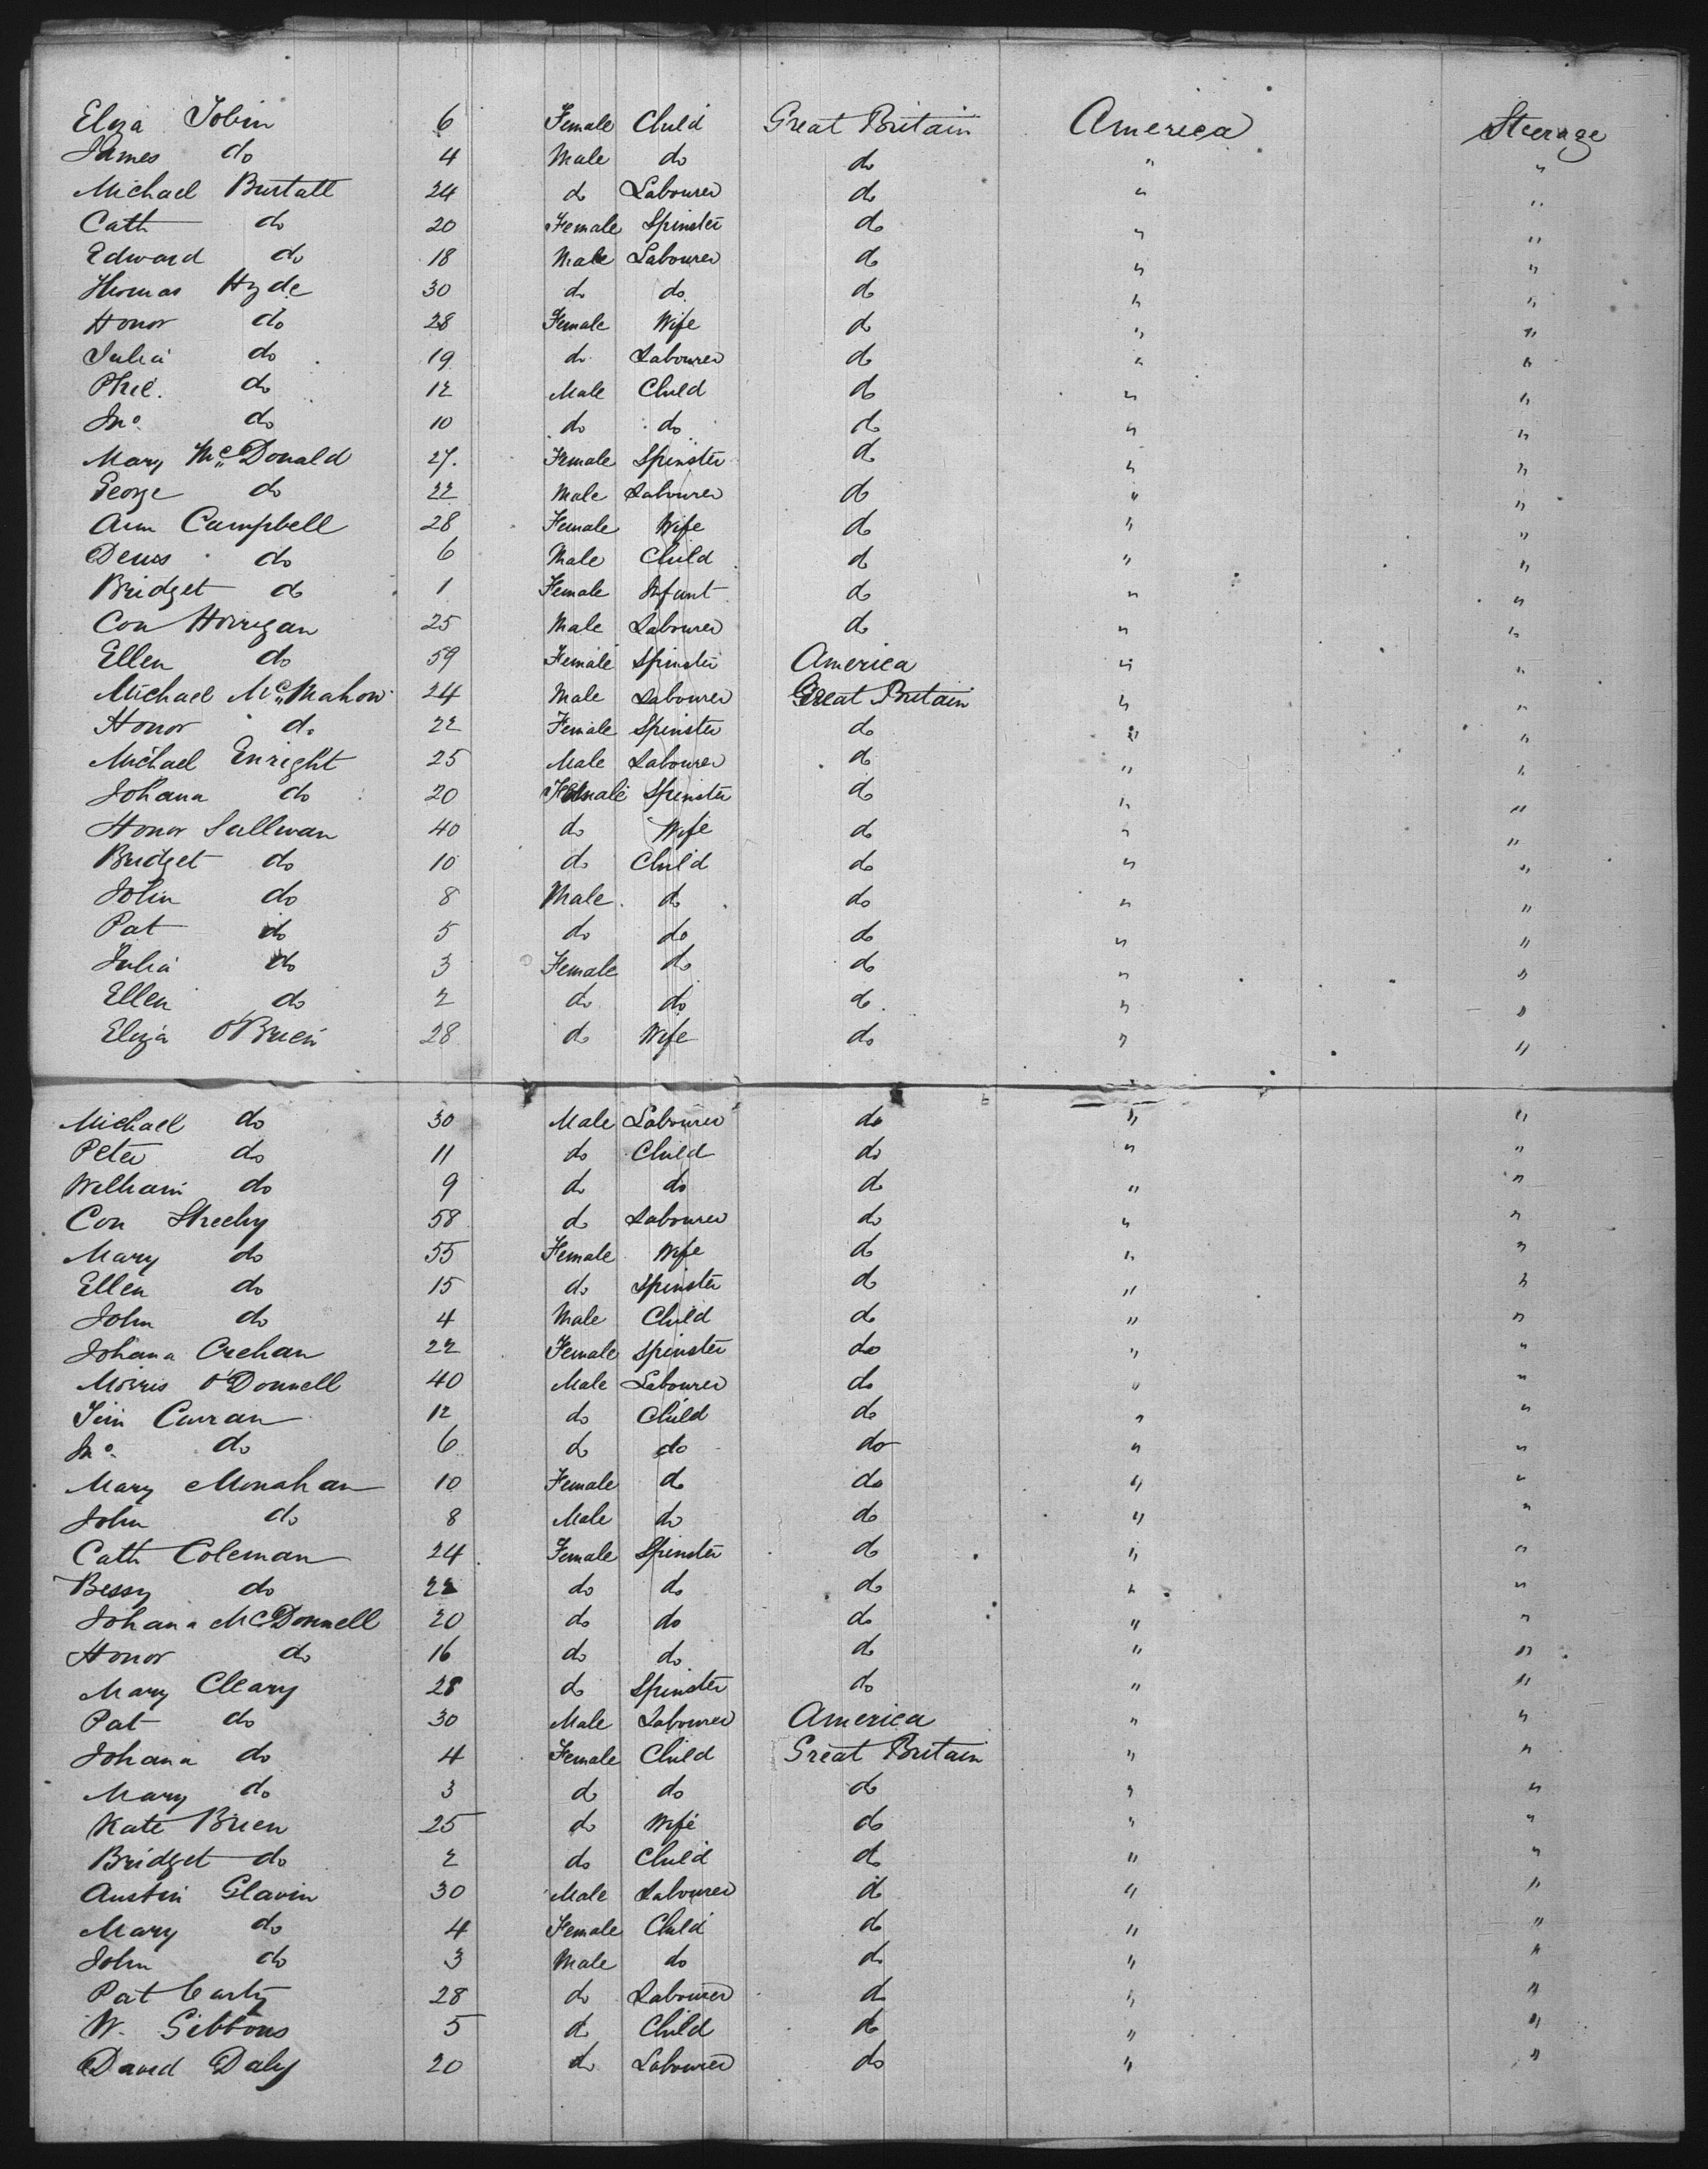 Eliza Tobin 6 Female Child Great Britain America Steerage
James do 4 Male do do " "
Michael Burtall 24 do Labourer do " "
Cath do 20 Female Spinster do " "
Edward do 18 Male Labourer do " "
Thomas Hyde 30 do do do " "
Honor do 28 Female Wife do " "
Julia do 19 do Labourer do " "
Phil. do 12 Male Child do " "
Jno. do 10 do do do " "
Mary McDonald 27. Female Spinster do " "
George do 22 Male Labourer do " "
Ann Campbell 28 Female Wife do " "
Denis do 6 Male Child do " "
Bridget do 1 Female Infant do " "
Con Horrigan 25 Male Labourer do " "
Ellen do 59 Female Spinster America " "
Michael McMahon 24 Male Labourer Great Britain " "
Honor do 22 Female Spinster do " "
Michael Enright 25 Male Labourer do " "
Johana do 20 Female Spinster do " "
Honor Sullivan 40 do Wife do " "
Bridget do 10 do Child do " "
John do 8 Male do do " "
Pat do 5 do do do " "
Julia do 3 Female do do " "
Ellen do 2 do do do " "
Eliza O'Brien 28 do Wife do " "
Michael do 30 Male Labourer do " "
Peter do 11 do Child do " "
William do 9 do do do " "
Con Sheehy 58 do Labourer do " "
Mary do 55 Female Wife do " "
Ellen do 15 do Spinster do " "
John do 4 Male Child do " "
Johana Crehan 22 Female Spinster do " "
Morris O'Donnell 40 Male Labourer do " "
Tim Curran 12 do Child do " "
Jno. do 6 do do do " "
Mary Monahan 10 Female do do " "
John do 8 Male do do " "
Cath Coleman 24 Female Spinster do " "
Bessy do 22 do do do " "
Johana McDonnell 20 do do do " "
Honor do 16 do do do " "
Mary Cleary 28 do Spinster do " "
Pat do 30 Male Labourer America " "
Johana do 4 Female Child Great Britain " "
Mary do 3 do do do " "
Kate Brien 25 do Wife do " "
Bridget do 2 do Child do " "
Austin Glavin 30 Male Labourer do " "
Mary do 4 Female Child do " "
John do 3 Male do do " "
Pat Carty 28 do Labourer do " "
W. Gibbons 5 do Child do " "
David Daly 20 do Labourer do " "